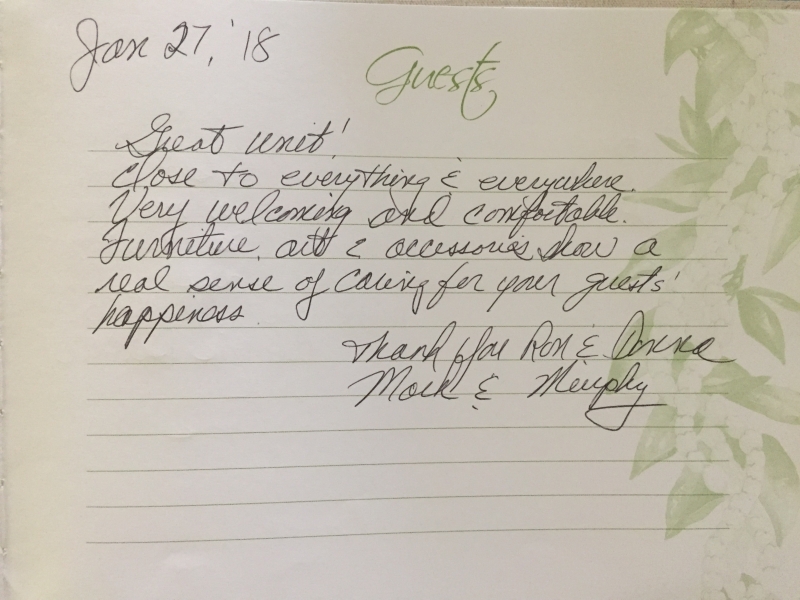 Jan 27, '18
Guests
Great unit!
Close to everything & everywhere.
Very welcoming and comfortable.
Furniture, art & accessories show a
real sense of caring for your guests'
happiness.
Thank you Ron & Anna
Mark & Murphy